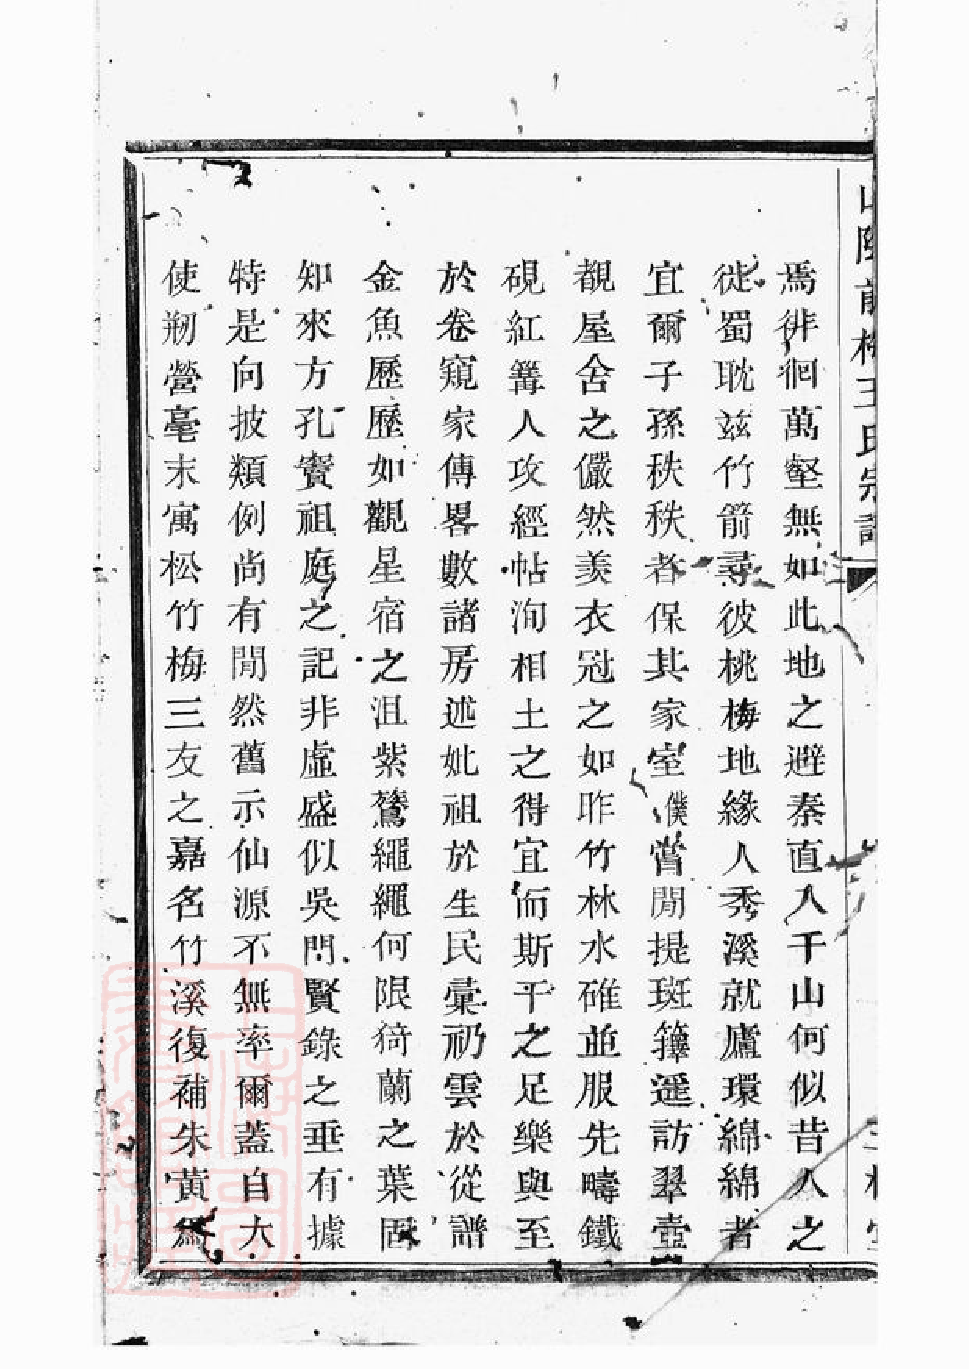 山陰前梅王氏宗譜
焉徘徊萬壑無如此地之避秦直入千山何似昔人之
徙蜀耽兹竹箭尋彼桃梅地緣人秀溪就廬環綿綿者
宜爾子孫秩秩者保其家室僕嘗閒提斑籜遥訪翠壺
覩屋舍之儼然羡衣冠之如昨竹林水碓並服先疇鐵
硯紅篝人攻經帖洵相土之得宜而斯干之足樂與至
於卷窺家傳畧數諸房述妣祖於生民彚礽雲於從譜
金魚歷歷如觀星宿之沮紫鷟繩繩何限猗蘭之葉固
知來方孔賽祖庭之記非虛盛似吳門賢錄之垂有據
特是向披類例尚有閒然舊示仙源不無率爾蓋自大
使剏營毫末寓松竹梅三友之嘉名竹溪復補朱黄爲